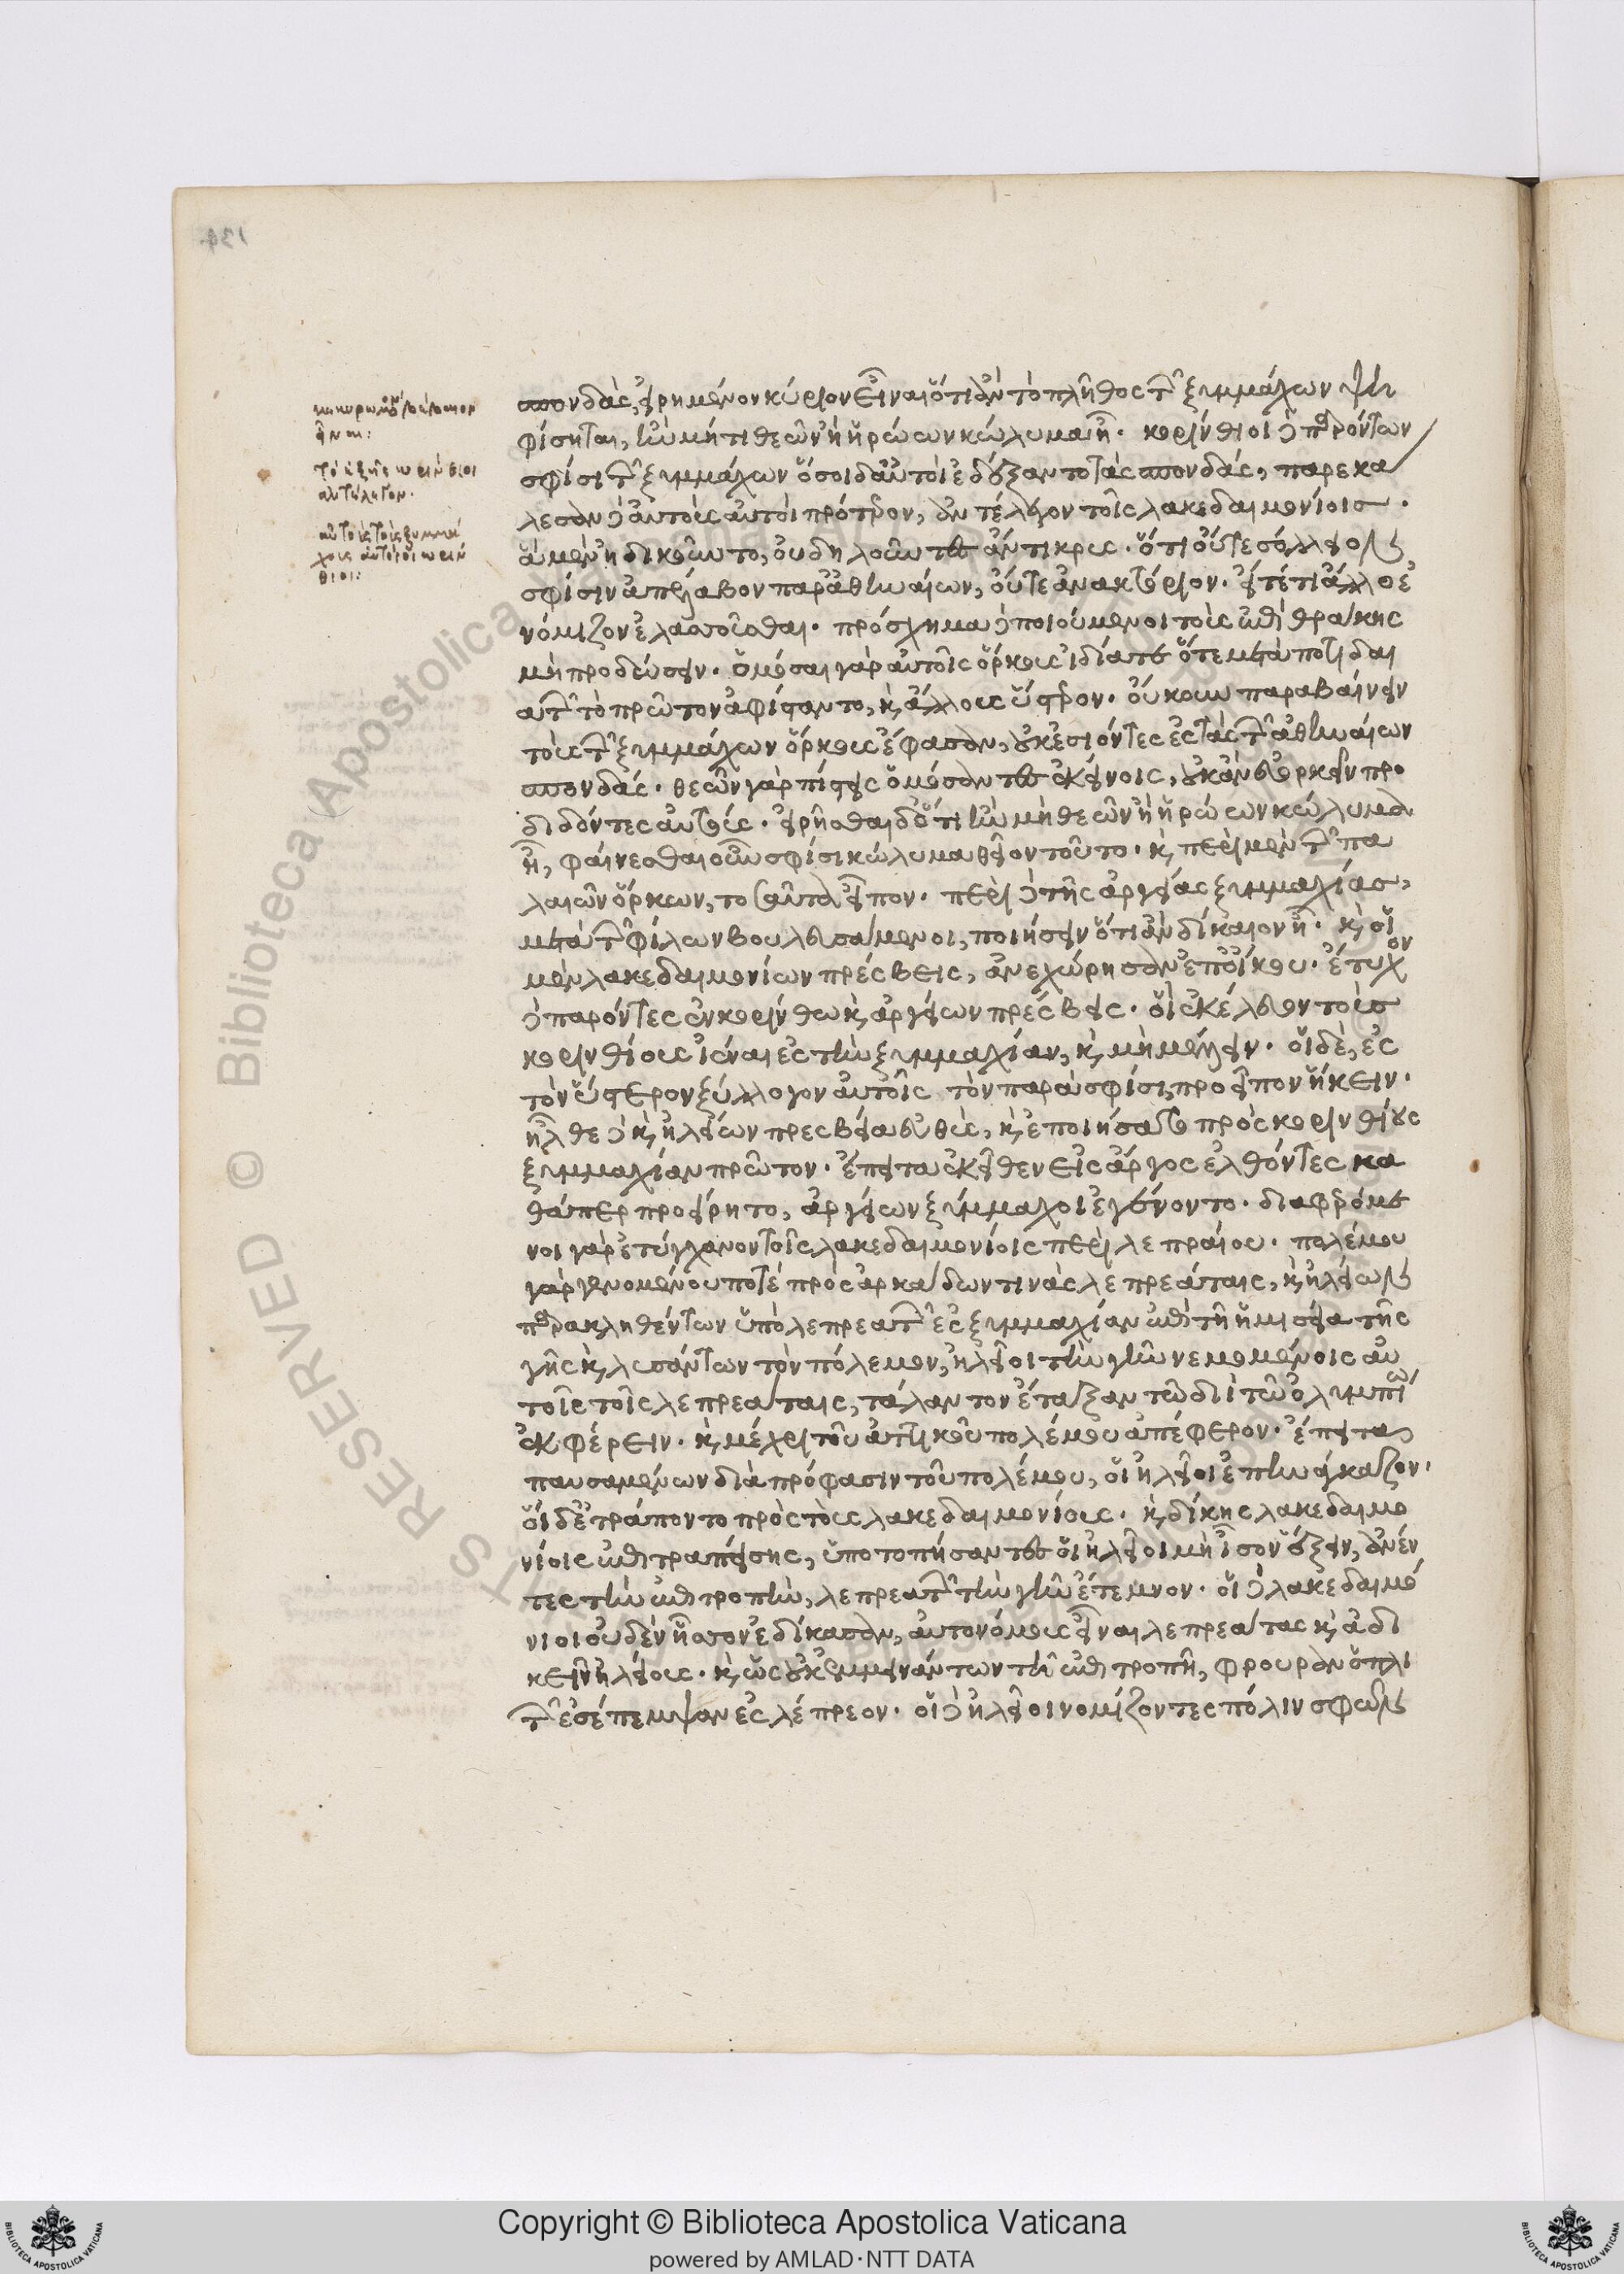 134
εἶναι:
τὸ ἑξῆς κορίνθιοι
ἀντέλεγον.
αὐτοὺς τοὺς ξυμμά
χους αὐτοὶ οἱ κορίν
θιοι:
σπονδὰς, εἰρημένον κύριον εἶναι ὅτι ἂν τὸ πλῆθος τῶν ξυμμάχων ψη
φίσηται, ἢν μή τι θεῶν ἢ ἡρώων κώλυμα ᾖ. κορίνθιοι δὲ παρόντων
σφίσι τῶν ξυμμάχων ὅσοι δ' αὐτοὶ ἐδέξαντο τὰς σπονδάς, παρεκά
λεσαν δὲ αὐτοὺς αὐτοὶ πρότερον, ἀντέλεγον τοῖς λακεδαιμονίοις.
ἃ μὲν ἠδικοῦντο, οὐ δηλοῦντες ἄντικρυς. ὅτι οὔτε σόλλειον
σφίσιν ἀπέλαβον παρ' ἀθηναίων, οὔτε ἀνακτόριον. εἴ τέ τι ἄλλο ἐ
νόμιζον ἐλασσοῦσθαι. πρόσχημα δὲ ποιούμενοι τοὺς ἐπὶ θράκης
μὴ προδώσειν. ὀμόσαι γὰρ αὐτοῖς ὅρκους ἰδίᾳ τε ὅτε μετὰ ποτιδαι
ατῶν τὸ πρῶτον ἀφίσταντο, καὶ ἄλλους ὕστερον. οὔκουν παραβαίνειν
τοὺς τῶν ξυμμάχων ὅρκους ἔφασαν, οὐκ ἐσιόντες ἐς τὰς τῶν ἀθηναίων
σπονδάς. θεῶν γὰρ πίστεις ὀμόσαντες ἐκείνοις, οὐκ ἂν εὐορκεῖν προ
διδόντες αὐτούς. εἰρῆσθαι δ' ὅτι ἢν μὴ θεῶν ἢ ἡρώων κώλυμα
ᾖ, φαίνεσθαι οὖν σφίσι κώλυμα θεῖον τοῦτο. καὶ περὶ μὲν τῶν πα
λαιῶν ὅρκων, τοσαῦτα εἶπον. περὶ δὲ τῆς ἀργείας ξυμμαχίας,
μετὰ τῶν φίλων βουλευσάμενοι, ποιήσειν ὅτι ἂν δίκαιον ᾖ. καὶ οἱ
μὲν λακεδαιμονίων πρέσβεις, ἀνεχώρησαν ἐπ' οἴκου. ἔτυχον
δὲ παρόντες ἐν κορίνθῳ καὶ ἀργείων πρέσβεις. οἳ ἐκέλευον τοὺς
κορινθίους ἰέναι ἐς τὴν ξυμμαχίαν, καὶ μὴ μέλλειν. οἱ δὲ, ἐς
τὸν ὕστερον ξύλλογον αὐτοῖς τὸν παρὰ σφίσι, προεῖπον ἥκειν.
ἦλθε δὲ καὶ ἠλείων πρεσβεία εὐθὺς, καὶ ἐποιήσατο πρὸς κορινθίους
ξυμμαχίαν πρῶτον. ἔπειτα ἐκεῖθεν εἰς ἄργος ἐλθόντες κα
θάπερ προείρητο, ἀργείων ξύμμαχοι ἐγένοντο. διαφερόμε
νοι γὰρ ἐτύγχανον τοῖς λακεδαιμονίοις περὶ λεπρέου. πολέμου
γὰρ γενομένου ποτὲ πρὸς ἀρκάδων τινὰς λεπρεάταις, καὶ ἠλείων
παρακληθέντων ὑπὸ λεπρεατῶν ἐς ξυμμαχίαν ἐπὶ τῇ ἡμισείᾳ τῆς
γῆς καὶ λυσάντων τὸν πόλεμον, ἠλεῖοι τὴν γῆν νεμομένοις αὐ
τοῖς τοῖς λεπρεάταις, τάλαντον ἔταξαν τῷ διὶ τῷ ὀλυμπίῳ
ἐκφέρειν. καὶ μέχρι τοῦ ἀττικοῦ πολέμου ἀπέφερον. ἔπειτα
παυσαμένων διὰ πρόφασιν τοῦ πολέμου, οἱ ἠλεῖοι ἐπηνάγκαζον.
οἱ δ' ἐτράποντο πρὸς τοὺς λακεδαιμονίους. καὶ δίκης λακεδαιμο
νίοις ἐπιτραπείσης, ὑποτοπήσαντες οἱ ἠλεῖοι μὴ ἴσον ἕξειν, ἀνέν
τες τὴν ἐπιτροπὴν, λεπρεατῶν τὴν γῆν ἔτεμνον. οἱ δὲ λακεδαιμό
νιοι οὐδὲν ἧσσον ἐδίκασαν, αὐτονόμους εἶναι λεπρεάτας καὶ ἀδι
κεῖν ἠλείους. καὶ ὡς οὐκ ἐμμεινάντων τῇ ἐπιτροπῇ, φρουρὰν ὁπλι
τῶν ἐσέπεμψαν ἐς λέπρεον. οἱ δὲ ἠλεῖοι νομίζοντες πόλιν σφῶν
Copyright © Biblioteca Apostolica Vaticana
powered by AMLAD·NTT DATA